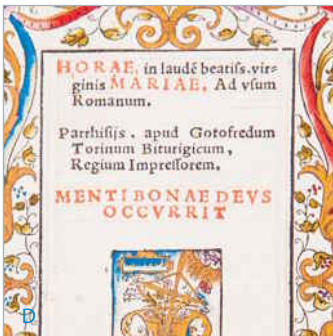 HORAE, in laudē beatiſs.vir=
ginis MARIAE, Ad vſum
Romanum.
Parrhiſijs, apud Gotofredum
Torinum Biturigicum,
Regium Impreſſorem.
MENTI BONAE DEVS
OCCVRRIT
D